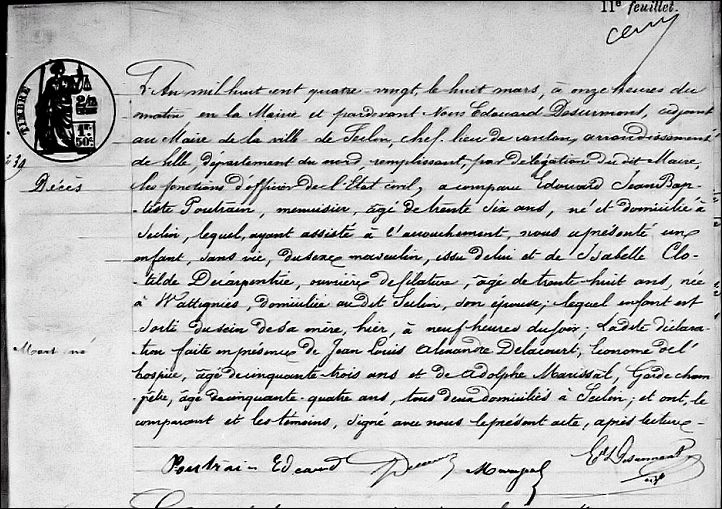 11e feuillet.
TIMBRE
1F
50c
L'An mil huit cent quatre vingt, le huit mars, à onze heures du
matin en la Mairie et pardevant Nous Edouard Desurmont, adjoint
au Maire de la ville de Seclin, chef-lieu de canton, arrondissement
de Lille, département du nord remplissant par délégation du dit Maire,
Décès
les fonctions d'officier de l'Etat civil, a comparu Edouard Jean Bap-
tiste Poutrain, menuisier, âgé de trente six ans, né et domicilié à
Seclin, lequel, ayant assisté à l'accouchement, nous a présenté un
enfant, sans vie, du sexe masculin, issu de lui et de Isabelle Clo-
tilde Decarpentrie, ouvrière de filature, âgée de trente huit ans, née
à Wattignies, domiciliée au dit Seclin, son épouse; lequel enfant est
sorti du sein de sa mère, hier, à neuf heures du soir; Ladite déclara-
Mort né
tion faite en présence de Jean Louis Alexandre Delacourt, Econome de l'
hospice, âgé de cinquante trois ans et de Adolphe Marissal, Garde cham-
pêtre, âgé de cinquante-quatre ans, tous deux domiciliés à Seclin; et ont, le
comparant et les témoins, signé avec nous le présent acte, après lecture-
Poutrain Edouard Ed Desurmont